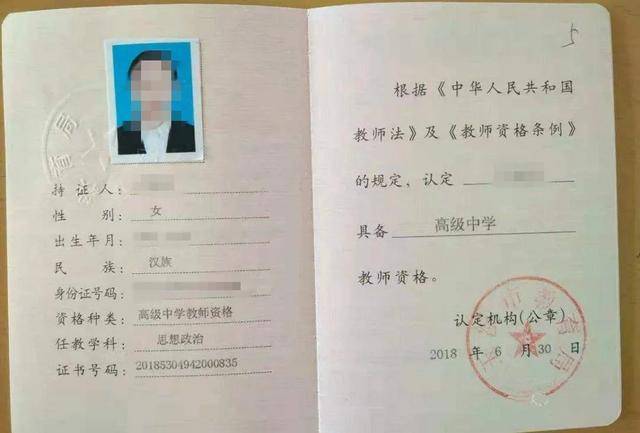 持证人：
性别：女
出生年月：
民族：汉族
身份证号码：
资格种类：高级中学教师资格
任教学科：思想政治
证书号码：20185304942000835
5
根据《中华人民共和国
教师法》及《教师资格条例》
的规定，认定
具备 高级中学
教师资格。
认定机构(公章)
2018 年 6 月 30 日